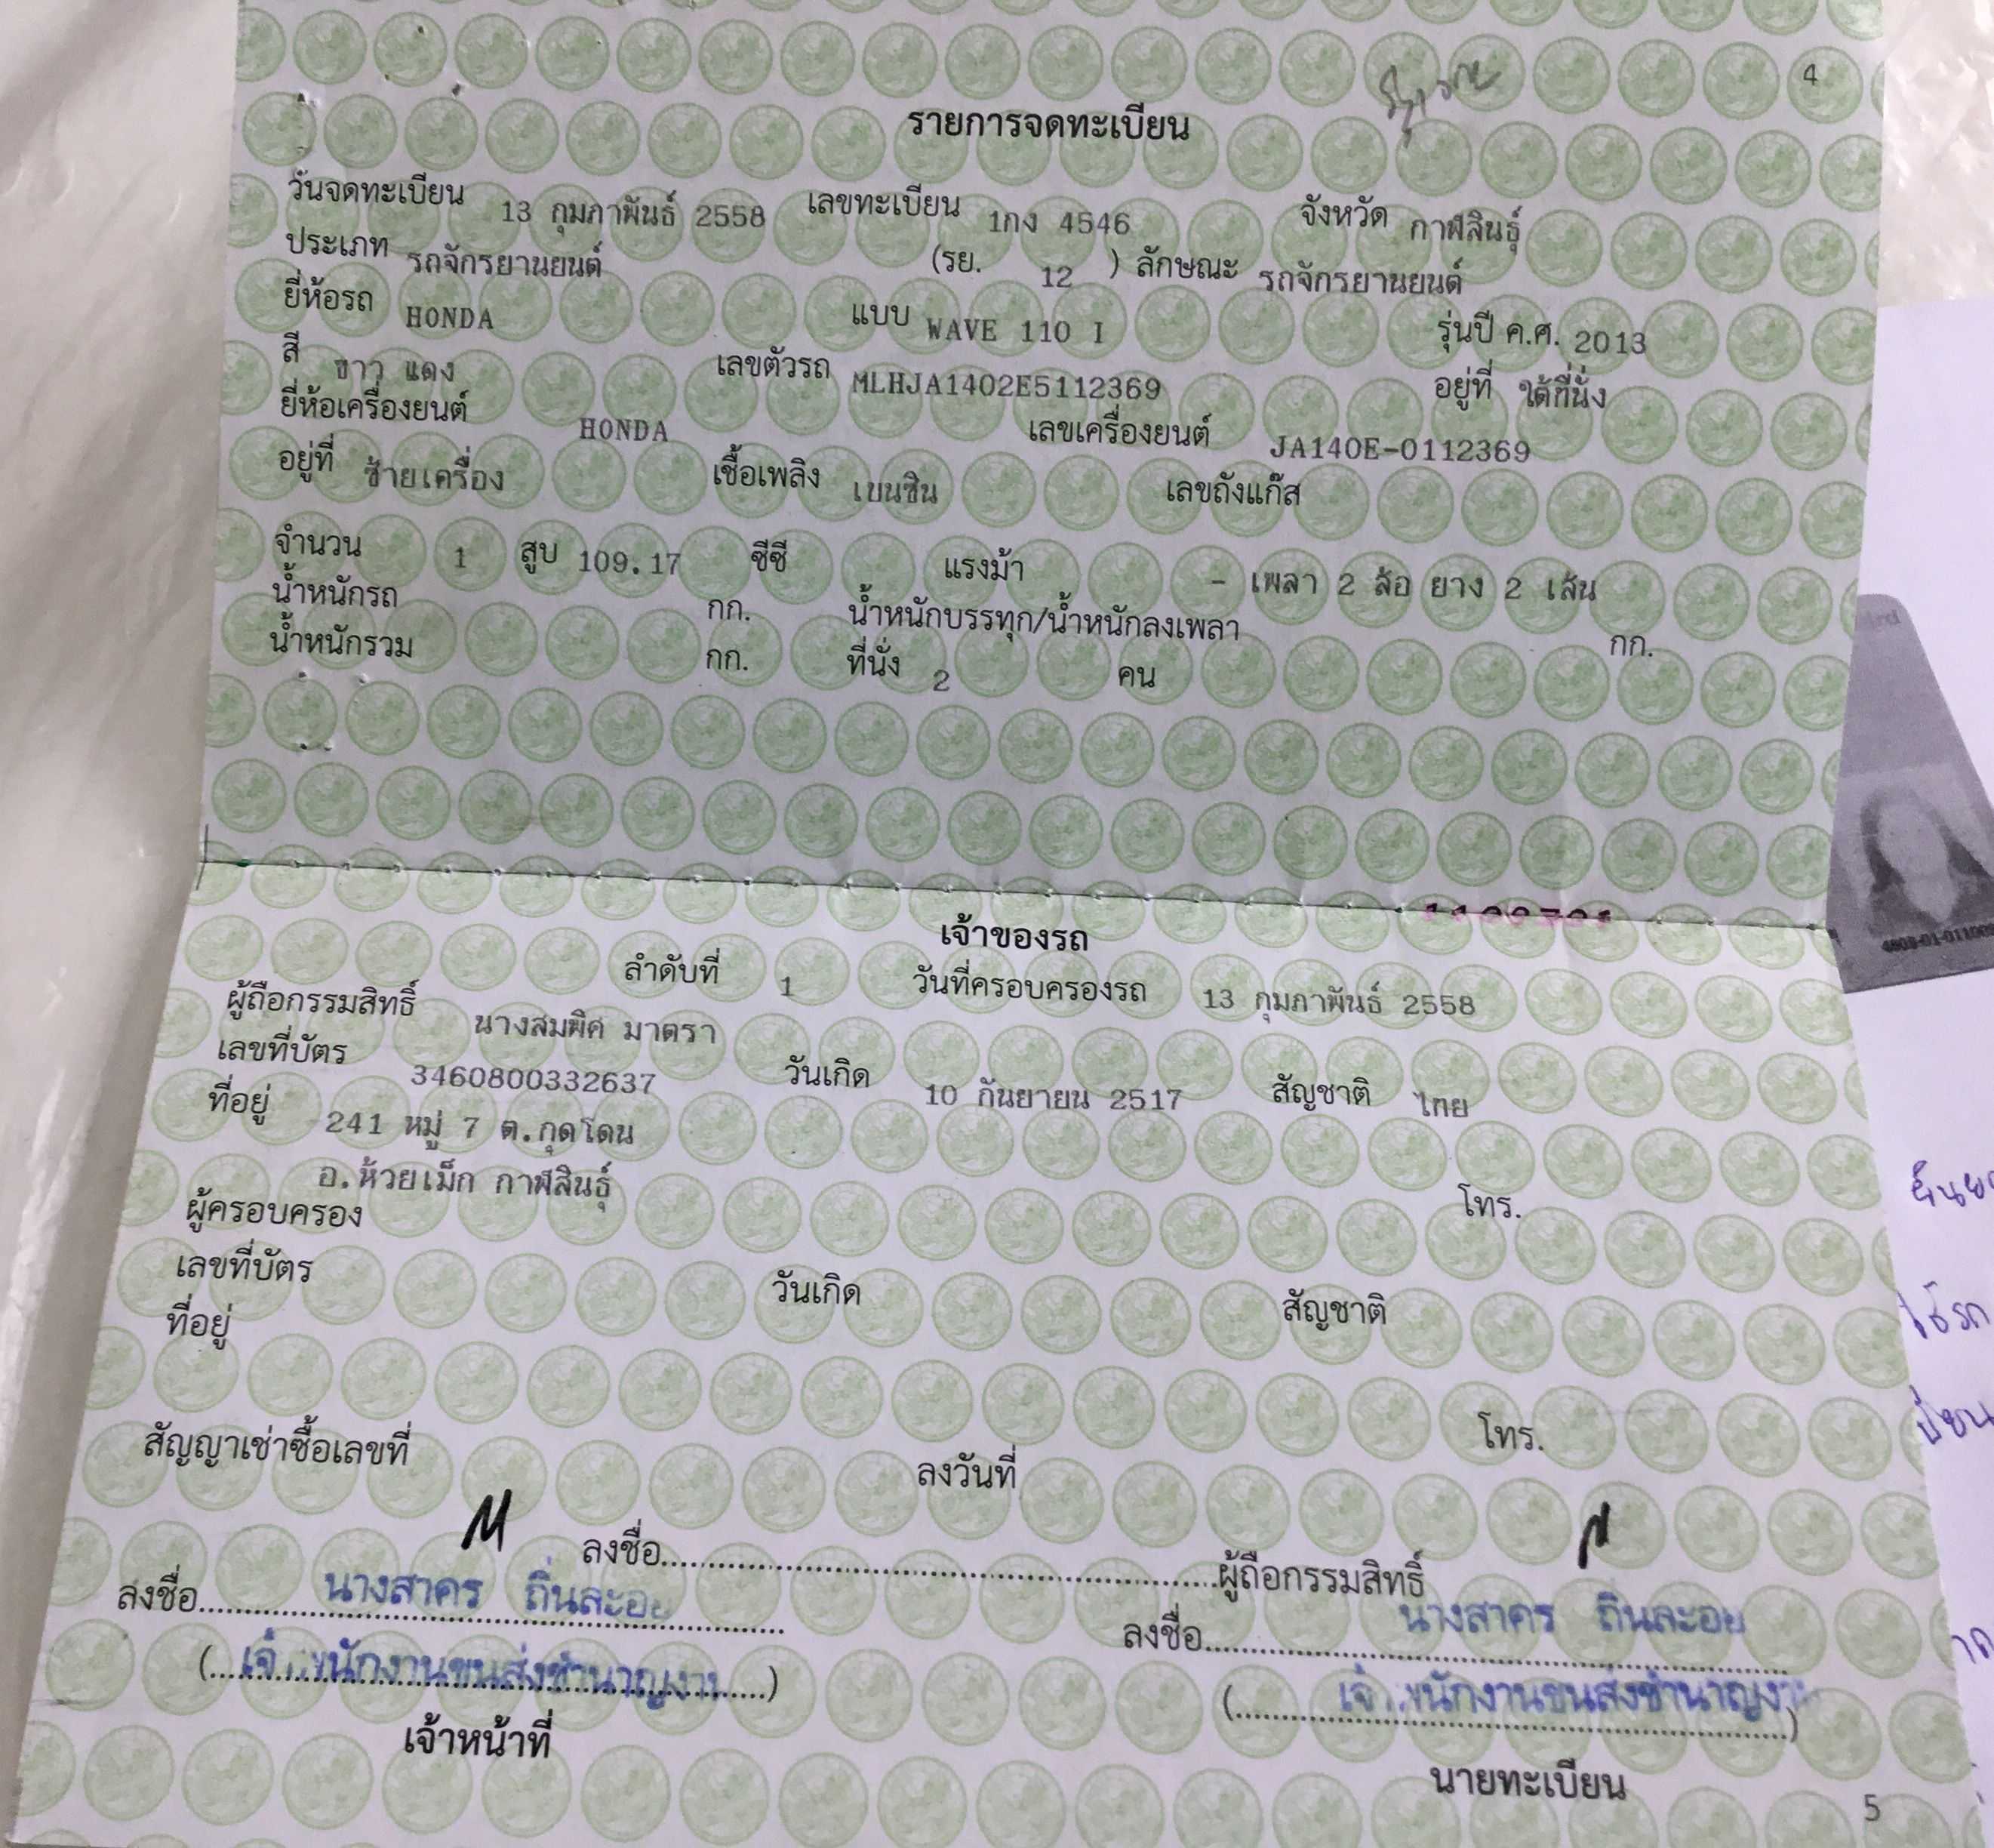 4
รายการจดทะเบียน
วันจดทะเบียน 13 กุมภาพันธ์ 2558 เลขทะเบียน 1กง 4546 จังหวัด กาฬสินธุ์
ประเภท รถจักรยานยนต์ (รย. 12 ) ลักษณะ รถจักรยานยนต์
ยี่ห้อรถ HONDA แบบ WAVE 110 I รุ่นปี ค.ศ. 2013
สี ขาว แดง เลขตัวรถ MLHJA1402E5112369 อยู่ที่ ใต้ที่นั่ง
ยี่ห้อเครื่องยนต์ HONDA เลขเครื่องยนต์ JA140E-0112369
อยู่ที่ ซ้ายเครื่อง เชื้อเพลิง เบนซิน เลขถังแก๊ส
จำนวน 1 สูบ 109.17 ซีซี แรงม้า - เพลา 2 ล้อ ยาง 2 เส้น
น้ำหนักรถ กก. น้ำหนักบรรทุก/น้ำหนักลงเพลา กก.
น้ำหนักรวม กก. ที่นั่ง 2 คน
เจ้าของรถ
ลำดับที่ 1 วันที่ครอบครองรถ 13 กุมภาพันธ์ 2558
ผู้ถือกรรมสิทธิ์ นางสมพิศ มาตรา
เลขที่บัตร 3460800332637 วันเกิด 10 กันยายน 2517 สัญชาติ ไทย
ที่อยู่ 241 หมู่ 7 ต.กุดโดน
อ.ห้วยเม็ก กาฬสินธุ์ โทร.
ผู้ครอบครอง
เลขที่บัตร วันเกิด สัญชาติ
ที่อยู่
โทร.
สัญญาเช่าซื้อเลขที่ ลงวันที่
ลงชื่อ ผู้ถือกรรมสิทธิ์
ลงชื่อ นางสาคร ถิ่นละออ ลงชื่อ นางสาคร ถิ่นละออ
(เจ้าพนักงานขนส่งชำนาญงาน) (เจ้าพนักงานขนส่งชำนาญงาน)
เจ้าหน้าที่ นายทะเบียน
5